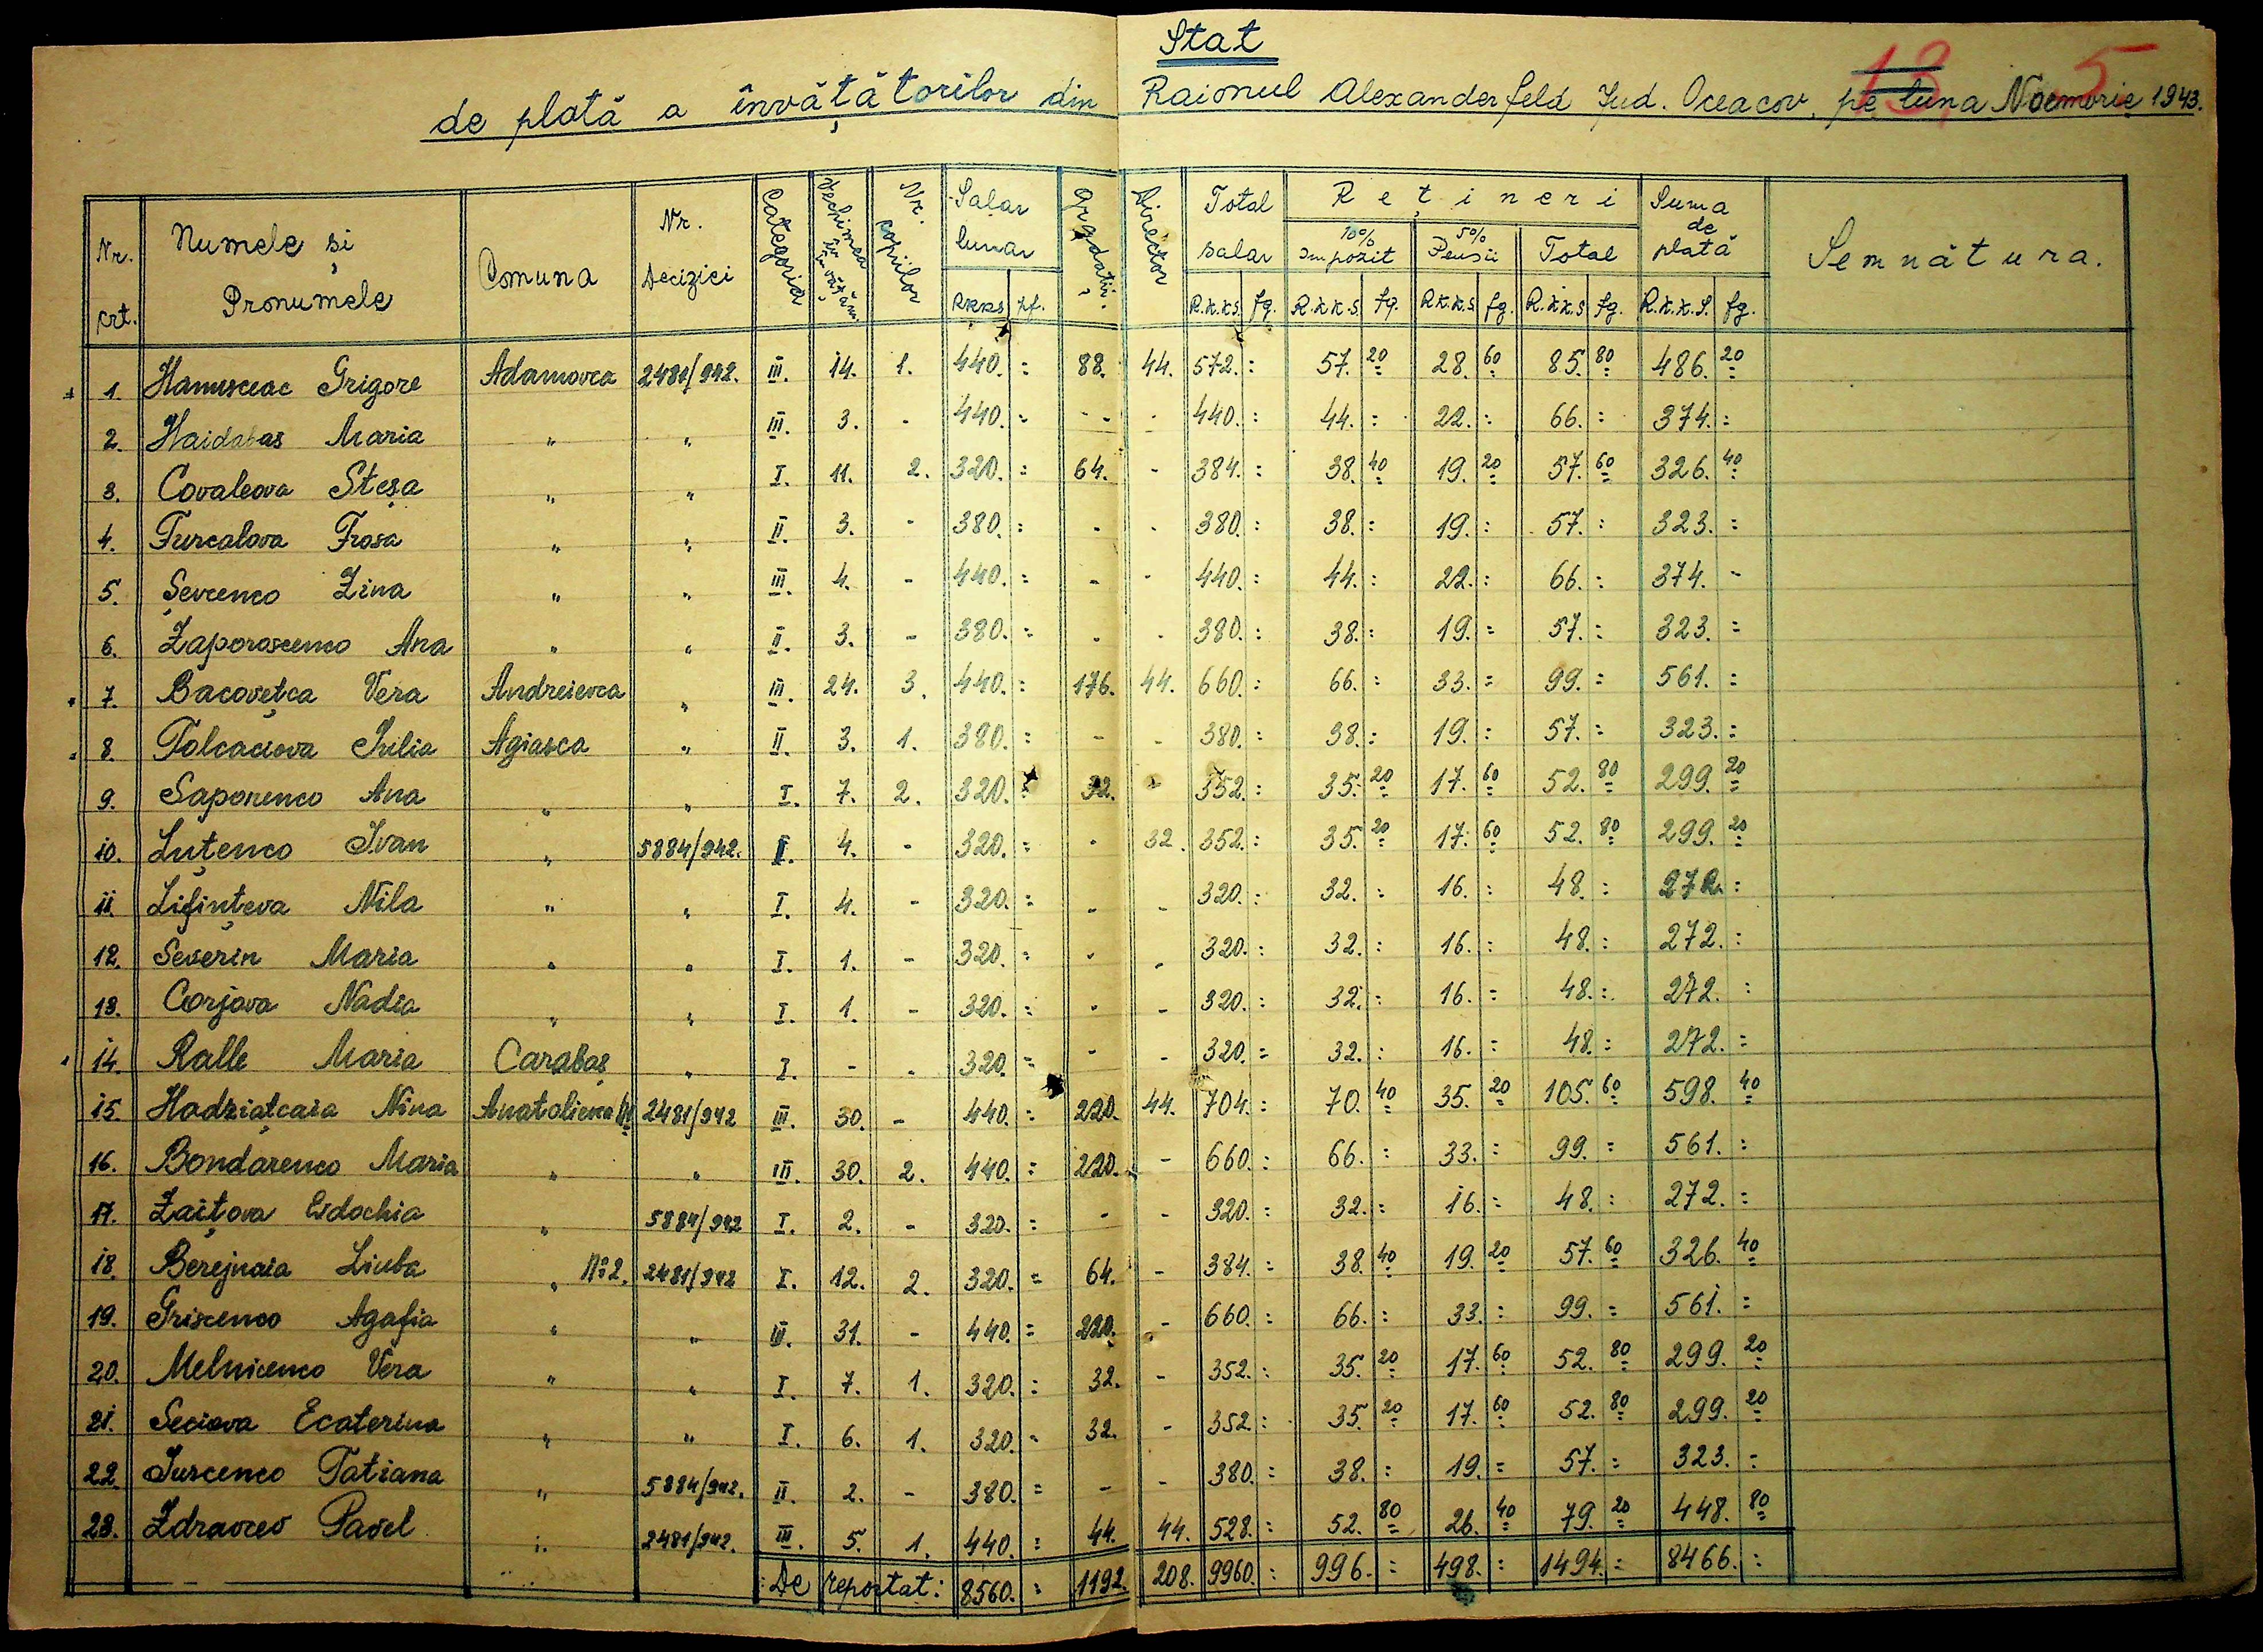 Stat
13. 5
de plată a învățătorilor din Raionul Alexanderfeld Jud. Oceacov, pe luna Noemvrie 1943.
Nr. crt. | Numele și Pronumele | Comuna | Nr. Deciziei | Categoria | Vechimea în învățăm. | Nr. copiilor | Salar lunar | Gradații. | Director | Total salar | Rețineri | Suma de plată | Semnătura.
10% Impozit | 5% Pensii | Total
RKKS | pf. | R.K.K.S. | fg. | R.K.K.S. | fg. | R.K.K.S | fg. | R.K.K.S | fg. | R.K.K.S. | fg.
1. Hanusceac Grigore | Adamovca | 2481/942. | III. | 14. | 1. | 440. : | 88. | 44. | 572. : | 57. 20 | 28. 60 | 85. 80 | 486. 20
2. Haidabas Maria | " | " | III. | 3. | - | 440. : | - | - | 440. : | 44. : | 22. : | 66. : | 374. :
3. Covaleova Steșa | " | " | I. | 11. | 2. | 320. : | 64. | - | 384. : | 38. 40 | 19. 20 | 57. 60 | 326. 40
4. Turcalova Frosa | " | " | II. | 3. | - | 380. : | - | - | 380. : | 38. : | 19. : | 57. : | 323. :
5. Șevcenco Zina | " | " | III. | 4. | - | 440. : | - | - | 440. : | 44. : | 22. : | 66. : | 374. -
6. Zaporoscenco Ana | " | " | II. | 3. | - | 380. : | - | - | 380. : | 38. : | 19. : | 57. : | 323. :
7. Bacovețca Vera | Andreievca | " | III. | 24. | 3. | 440. : | 176. | 44. | 660. : | 66. : | 33. : | 99. : | 561. :
8. Tolcaciova Iulia | Agiasca | " | II. | 3. | 1. | 380. : | - | - | 380. : | 38. : | 19. : | 57. : | 323. :
9. Saponenco Ana | " | " | I. | 7. | 2. | 320. : | 32. | - | 352. : | 35. 20 | 17. 60 | 52. 80 | 299. 20
10. Luțenco Ivan | " | 5884/942. | I. | 4. | - | 320. : | - | 32. | 352. : | 35. 20 | 17. 60 | 52. 80 | 299. 20
11. Lifințeva Nila | " | " | I. | 4. | - | 320. : | - | - | 320. : | 32. : | 16. : | 48. : | 272. :
12. Severin Maria | " | " | I. | 1. | - | 320. : | - | - | 320. : | 32. : | 16. : | 48. : | 272. :
13. Corjova Nadia | " | " | I. | 1. | - | 320. : | - | - | 320. : | 32. : | 16. : | 48. : | 272. :
14. Ralle Maria | Carabaș | " | I. | - | - | 320. : | - | - | 320. : | 32. : | 16. : | 48. : | 272. :
15. Hadziațcaia Nina | 2481/942 | III. | 30. | - | 440. : | 220. | 44. | 704. : | 70. 40 | 35. 20 | 105. 60 | 598. 40
16. Bondarenco Maria | " | " | III. | 30. | 2. | 440. : | 220. | - | 660. : | 66. : | 33. : | 99. : | 561. :
17. Zaițova Evdochia | " | 5884/942 | I. | 2. | - | 320. : | - | - | 320. : | 32. : | 16. : | 48. : | 272. :
18. Berejnaia Liuba | " No 2. | 2481/942 | I. | 12. | 2. | 320. : | 64. | - | 384. : | 38. 40 | 19. 20 | 57. 60 | 326. 40
19. Griscenco Agafia | " | " | III. | 31. | - | 440. : | 220. | - | 660. : | 66. : | 33. : | 99. : | 561. :
20. Melnicenco Vera | " | " | I. | 7. | 1. | 320. : | 32. | - | 352. : | 35. 20 | 17. 60 | 52. 80 | 299. 20
21. Seciova Ecaterina | " | " | I. | 6. | 1. | 320. - | 32. | - | 352. : | 35. 20 | 17. 60 | 52. 80 | 299. 20
22. Iurcenco Tatiana | " | 5884/942. | II. | 2. | - | 380. : | - | - | 380. : | 38. : | 19. : | 57. : | 323. :
23. Zdravcev Pavel | " | 2481/942. | III. | 5. | 1. | 440. : | 44. | 44. | 528. : | 52. 80 | 26. 40 | 79. 20 | 448. 80
De reportat: 8560. : | 1192. | 208. | 9960. : | 996. : | 498. : | 1494. : | 8466. :